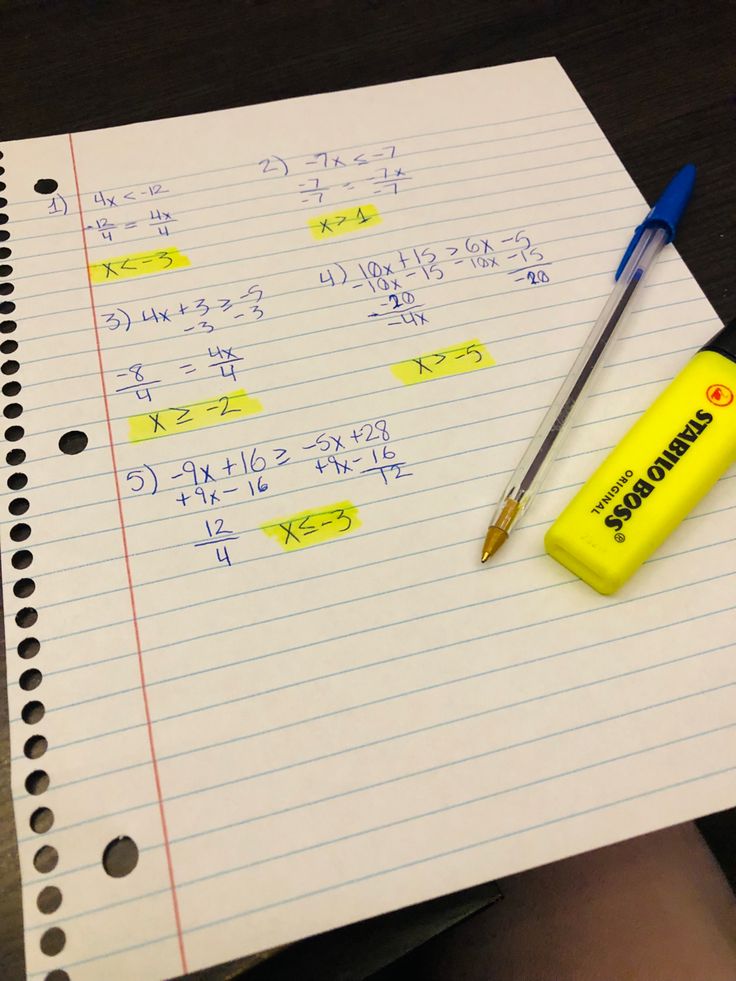 1) 4x < -12
-12/4 = 4x/4
x < -3
2) -7x ≤ -7
-7/-7 = -7x/-7
x > 1
3) 4x + 3 ≥ -5
-3 -3
-8/4 = 4x/4
x ≥ -2
4) 10x + 15 > 6x - 5
-10x - 15 -10x - 15
-20
-20/-4x
x > -5
5) -9x + 16 ≥ -5x + 28
+9x - 16 +9x - 16
12
12/4
x ≤ -3
STABILO BOSS
ORIGINAL